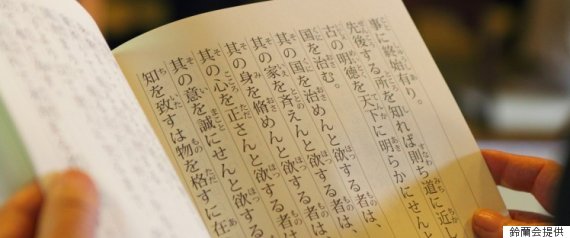 事に終始有り。
先後する所を知れば則ち道に近し
古の明徳を天下に明らかにせん
国を治む。
其の国を治めんと欲する者は、
其の家を斉えんと欲する者は、
其の身を脩めんと欲する者は、
其の心を正さんと欲する者
其の意を誠にせんと欲する
知を致すは物を格すに在
鈴蘭会提供